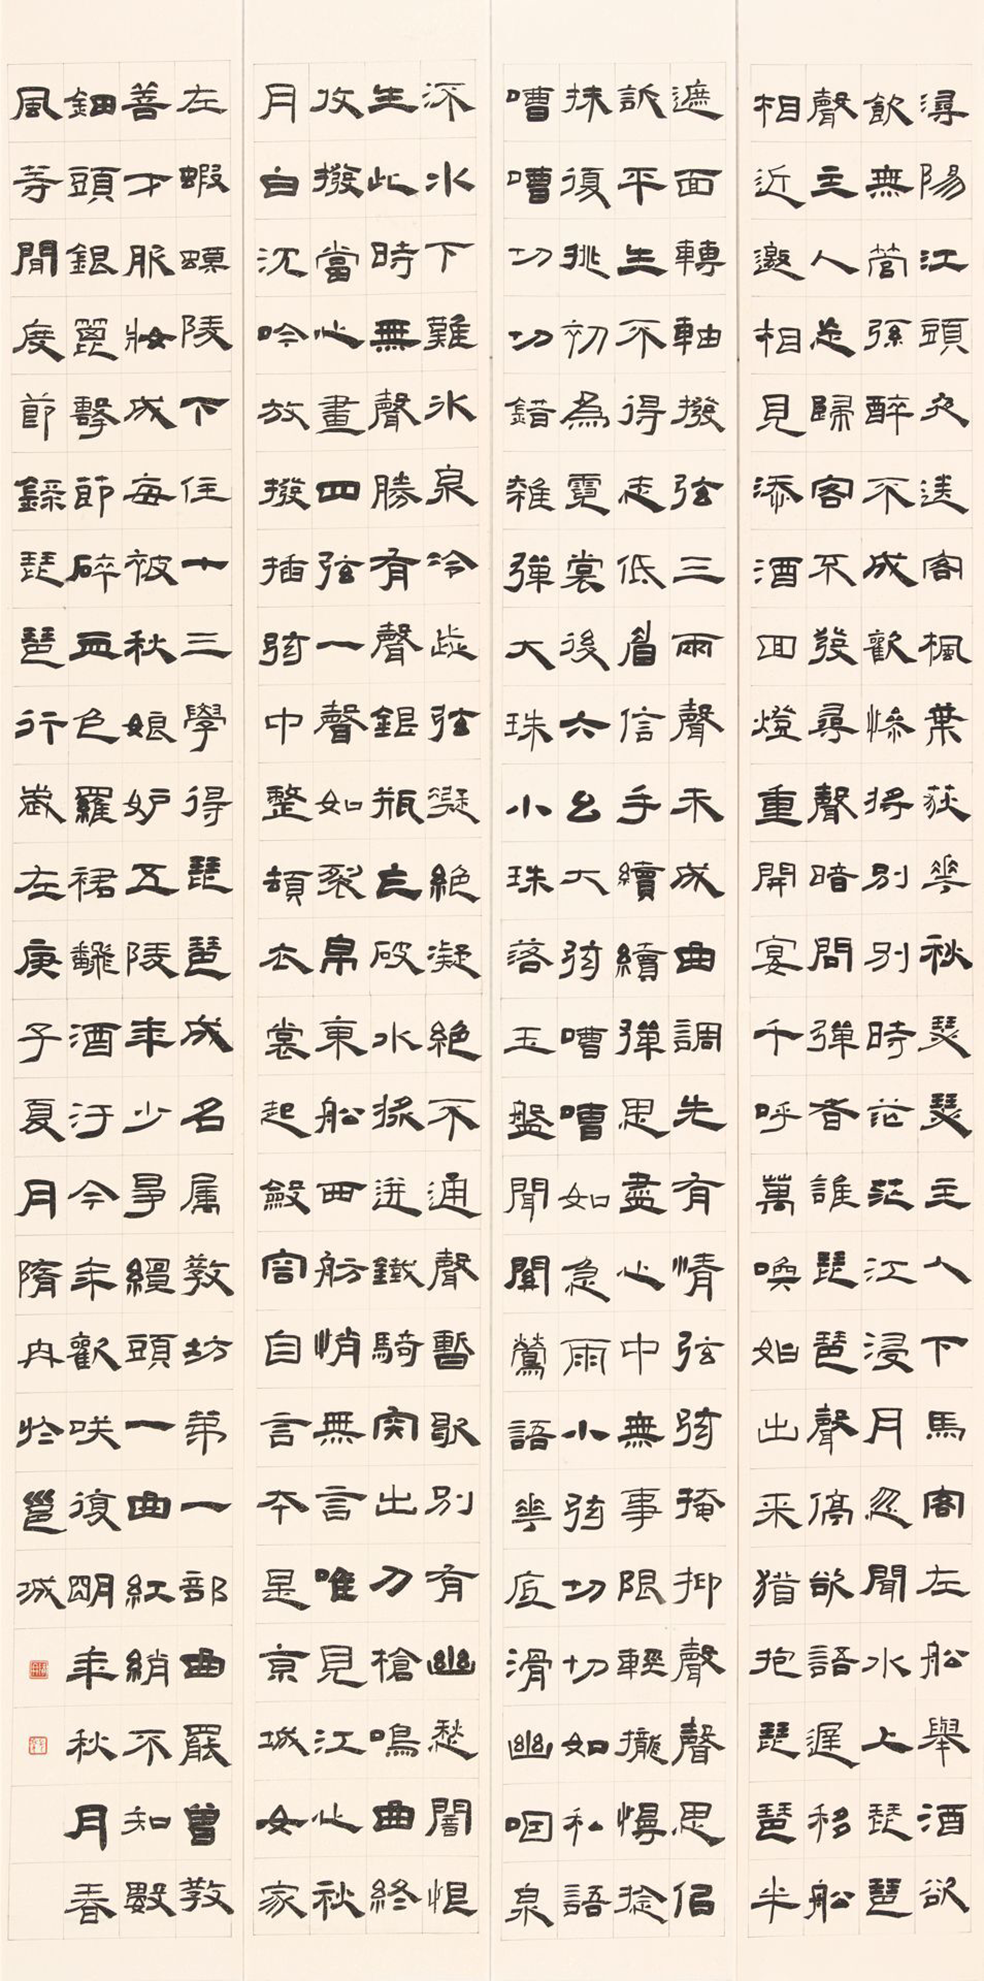 潯陽江頭夜送客楓葉荻花秋瑟瑟主人下馬客在船舉酒欲
飲無管弦醉不成歡慘將別別時茫茫江浸月忽聞水上琵琶
聲主人忘歸客不發尋聲暗問彈者誰琵琶聲停欲語遲移船
相近邀相見添酒回燈重開宴千呼萬喚始出來猶抱琵琶半
遮面轉軸撥弦三兩聲未成曲調先有情弦弦掩抑聲聲思似
訴平生不得志低眉信手續續彈思盡心中無事限輕攏慢撚
抹復挑初為霓裳後六幺大弦嘈嘈如急雨小弦切切如私語
嘈嘈切切錯雜彈大珠小珠落玉盤間關鶯語花底滑幽咽泉
流水下難冰泉冷澀弦凝絕凝絕不通聲暫歇別有幽愁闇恨
生此時無聲勝有聲銀瓶乍破水漿迸鐵騎突出刀槍鳴曲終
收撥當心畫四弦一聲如裂帛東船西舫悄無言唯見江心秋
月白沉吟放撥插弦中整頓衣裳起斂容自言本是京城女家
在蝦蟆陵下住十三學得琵琶成名屬教坊第一部曲罷曾教
善才服妝成每被秋娘妒五陵年少爭纏頭一曲紅綃不知數
鈿頭銀篦擊節碎血色羅裙翻酒汙今年歡笑復明年秋月春
風等閒度節錄琵琶行歲在庚子夏月隋冉於邕城